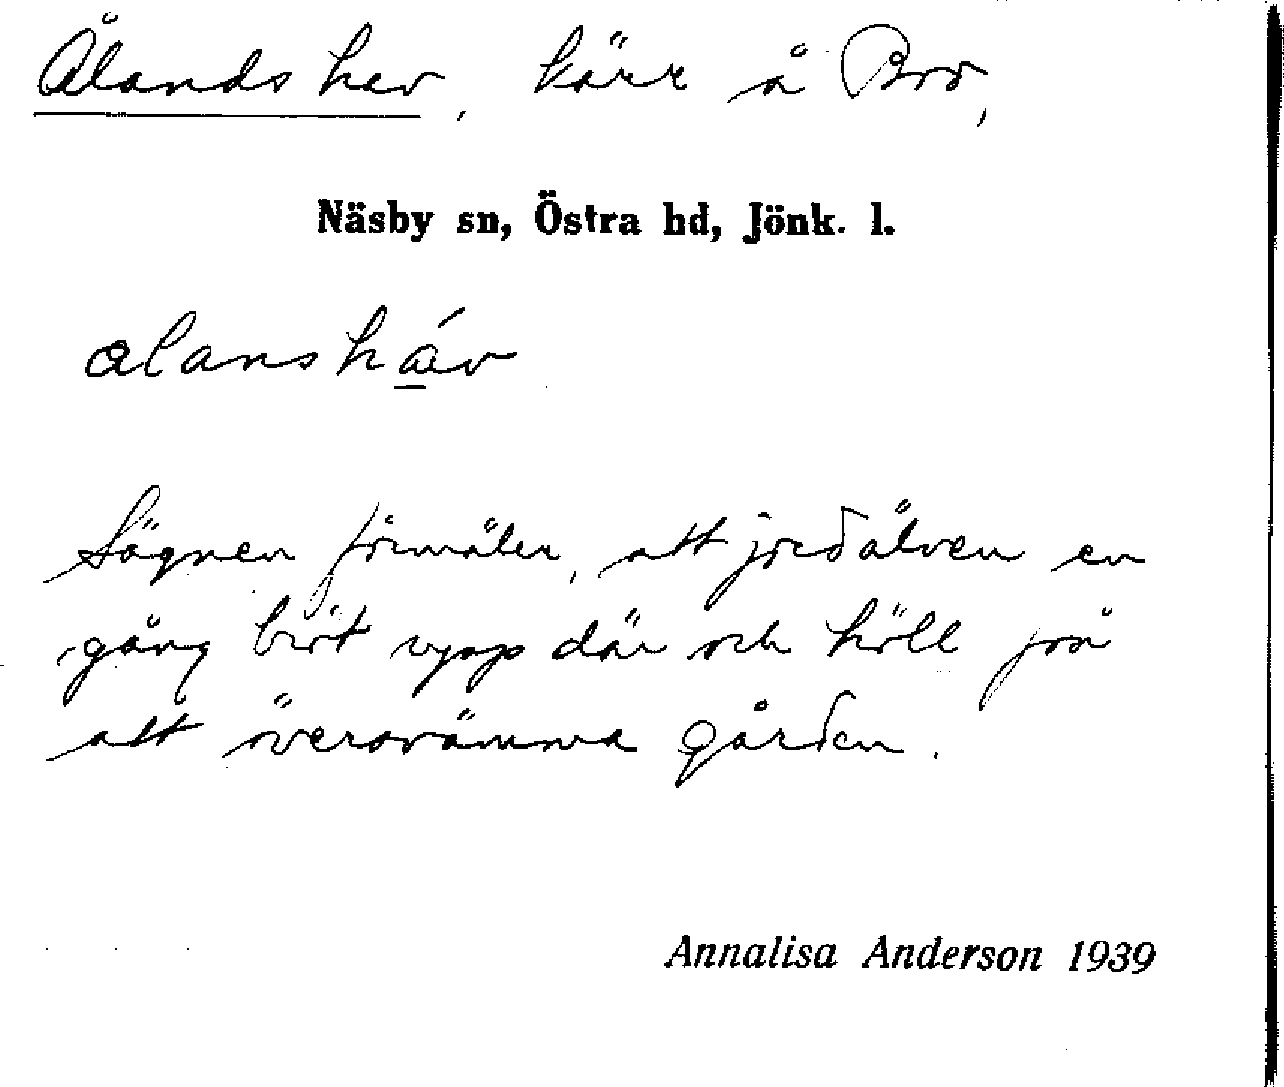 Ålands hav, kärr å Bro,
Näsby sn, Östra hd, Jönk. l.
alansháv
Sägnen förmäler, att jordälven en
gång bröt upp där och höll på
att översvämma gården.
Annalisa Anderson 1939